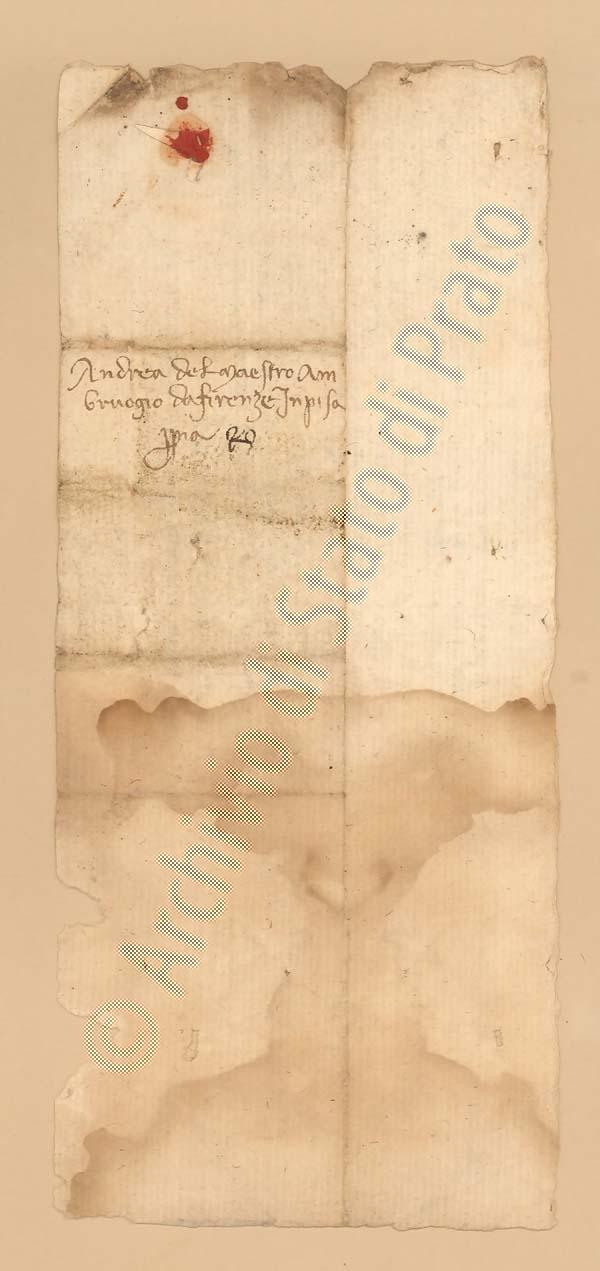 Andrea del Maestro Am
bruogio da firenze In pisa
ppia
© Archivio di Stato di Prato